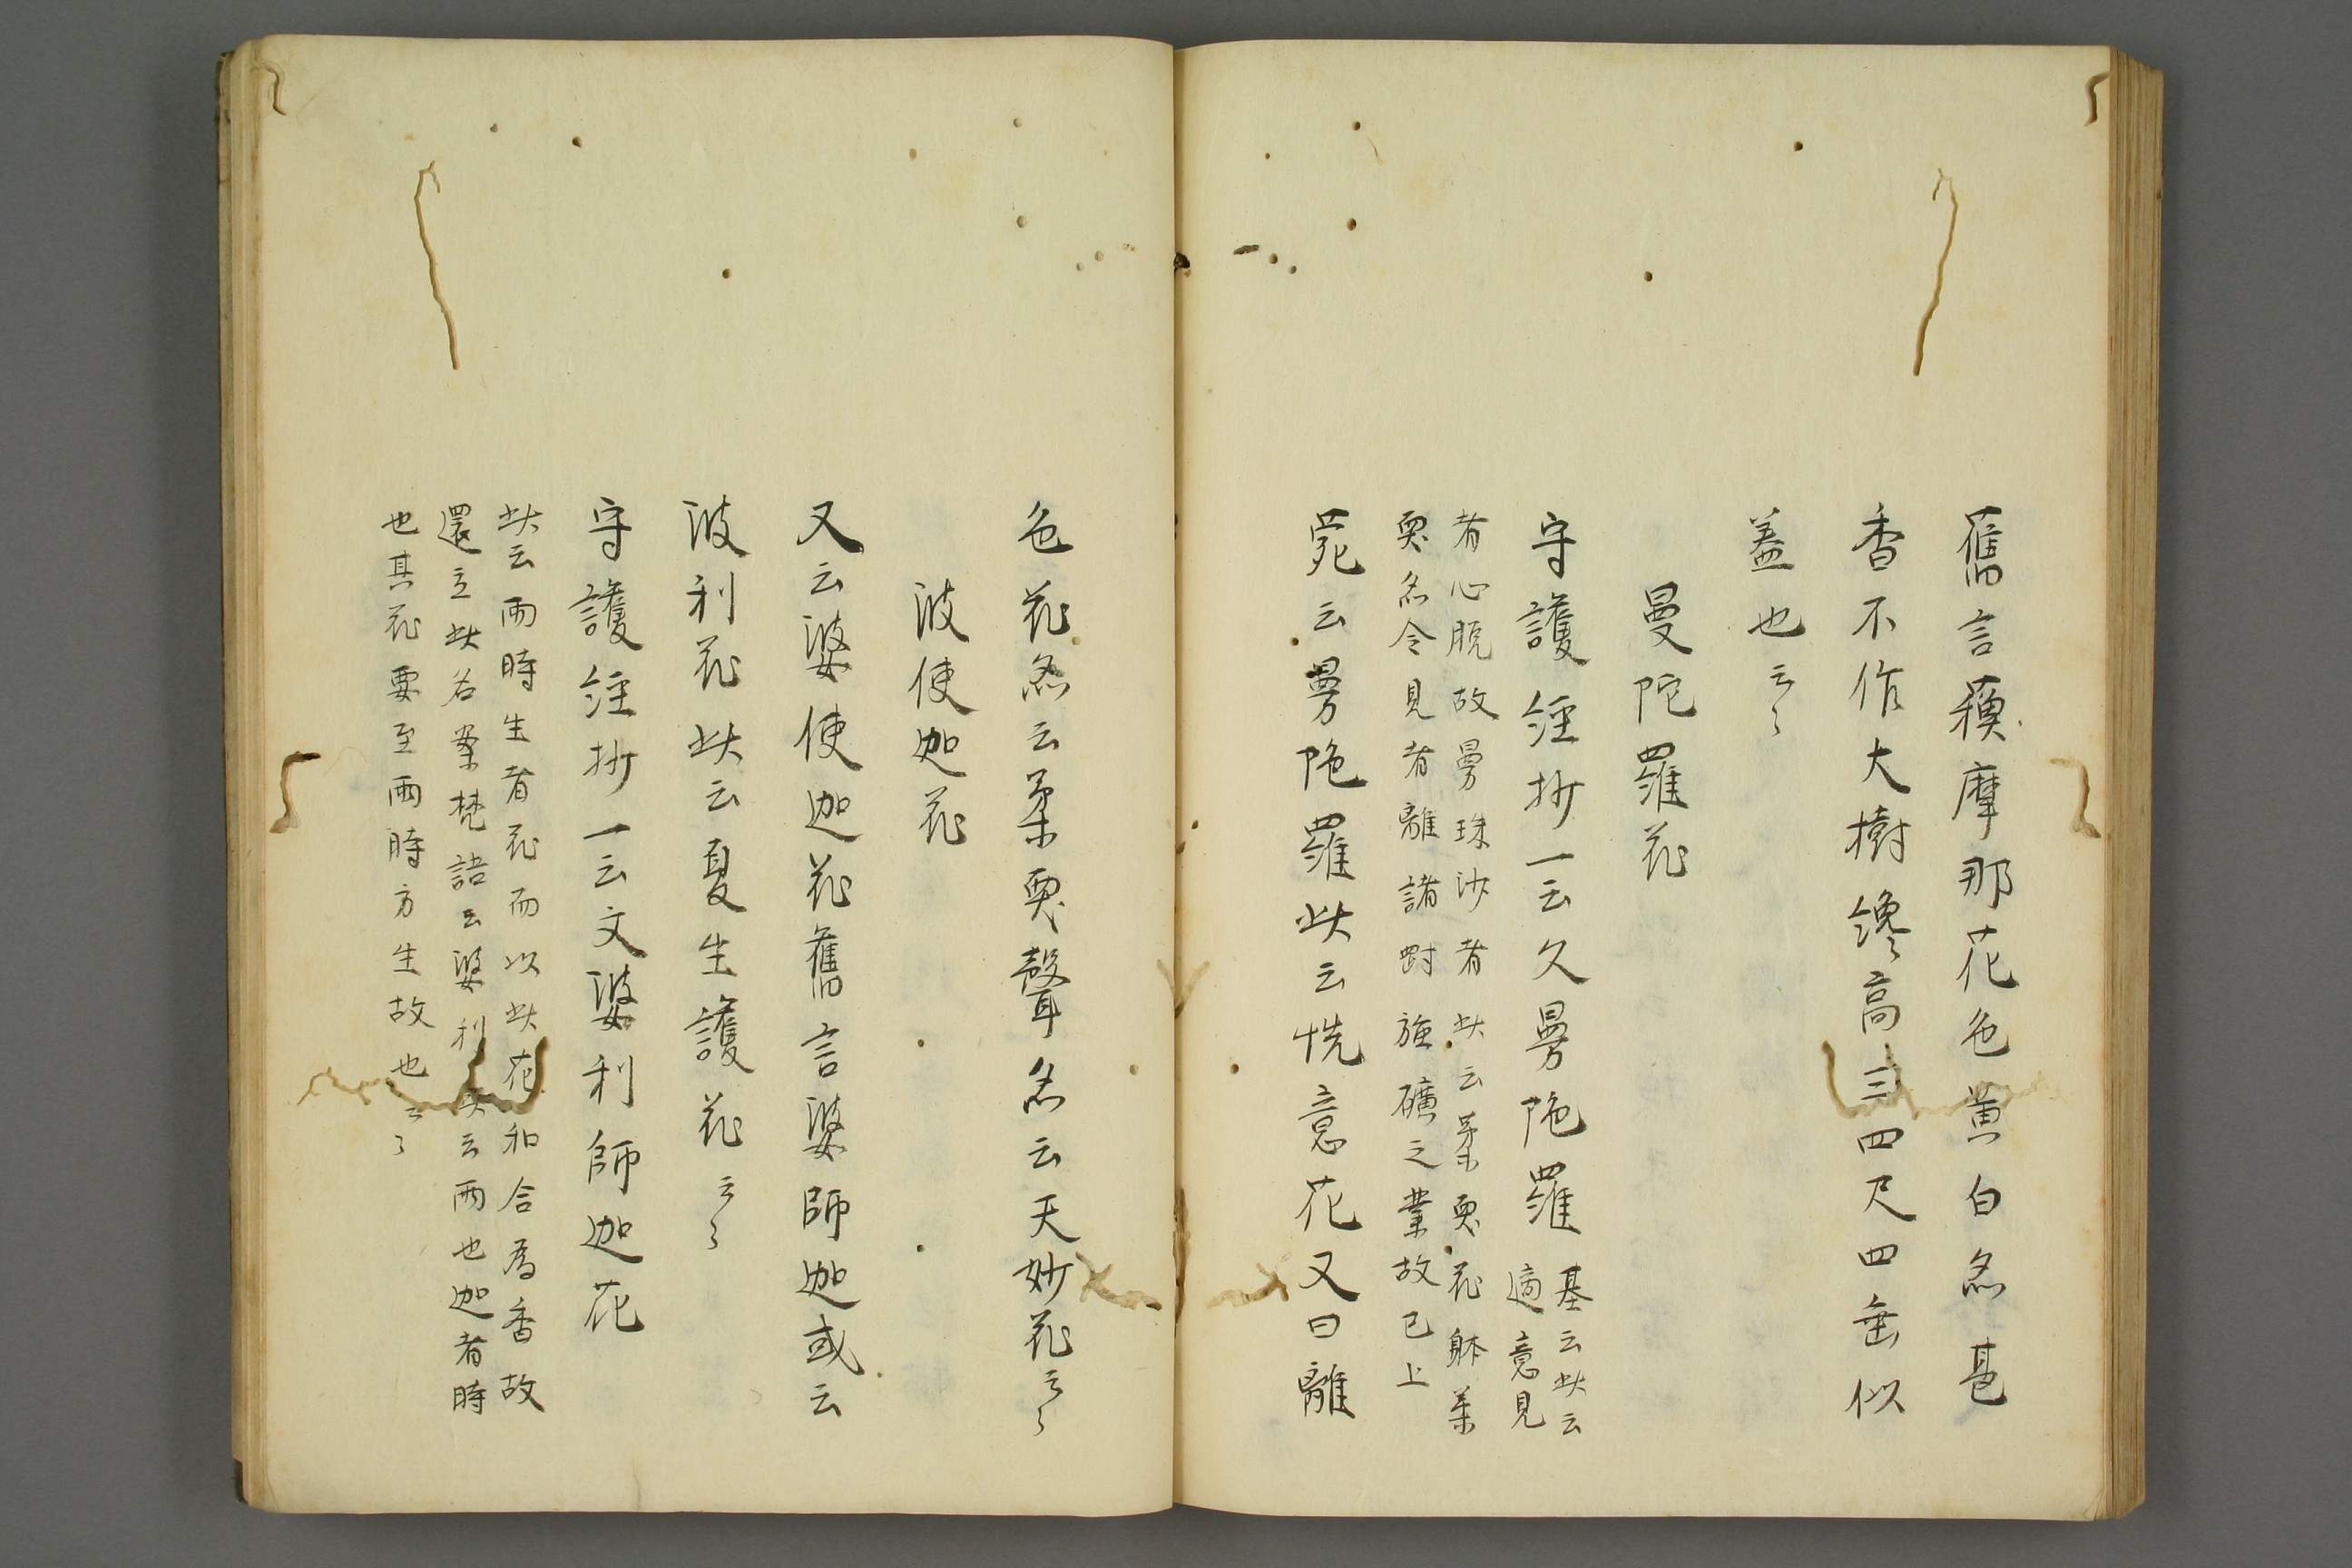 舊言蘓摩那花色黄白㷔甚
香不作大樹纔高三四尺四垂似
盖也云〻
曼陀羅花
守護經抄一云文曼陁羅
基云此云
適意見
者心脱故曼珠沙者此云柔耎花躰柔
耎㷔令見者離諸
礦之業故已上
苑云曼陁羅此云悦意花又曰離
色花㷔云柔耎聲㷔云天妙花云〻
波使迦花
又云婆使迦花舊言婆師迦或云
波利花此云夏生護花云〻
守護經抄一云文婆利師迦花
此云雨時生者花而以此花和合為香故
還立此名案梵語云婆利 云雨也迦者時
也其花要至雨時方生故也云〻